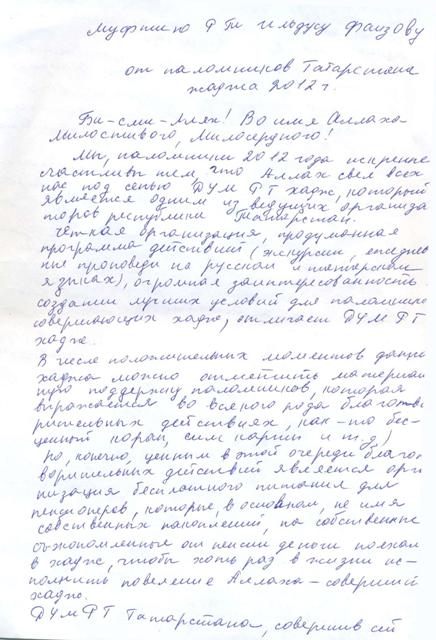 Муфтию РТ Ильдусу Фаизову
от паломников Татарстана
хаджа 2012 г.
Би-сми-Ллях! Во имя Аллаха
Милостивого, Милосердного!
Мы, паломники 2012 года искренне
счастливы тем, что Аллах свел всех
нас под сенью ДУМ РТ хадж, который
является одним из ведущих организа
торов республики Татарстан.
Чёткая организация, продуманная
программа действий (экскурсии, ежеднев
ные проповеди на русском и татарском
языках), огромная заинтересованность
создании лучших условий для паломник
совершающих хадж, отличает ДУМ РТ
хадж.
В числе положительных моментов данно
хаджа можно отметить материал
ную поддержку паломников, которая
выражается во всякого рода благотво
рительных действиях, как-то бес-
ценный коран, сим карты и т.д.)
Но, конечно, ценным в этой очереди благо
ворительных действий является орга
низация бесплатного питания для
пенсионеров, которые, в основном, не имея
собственных накоплений, на собственные
съэкономленные от пенсии деньги поехали
в хадж, чтобы хоть раз в жизни ис-
полнить повеление Аллаха - совершит
хадж.
ДУМ РТ Татарстана, совершив ей